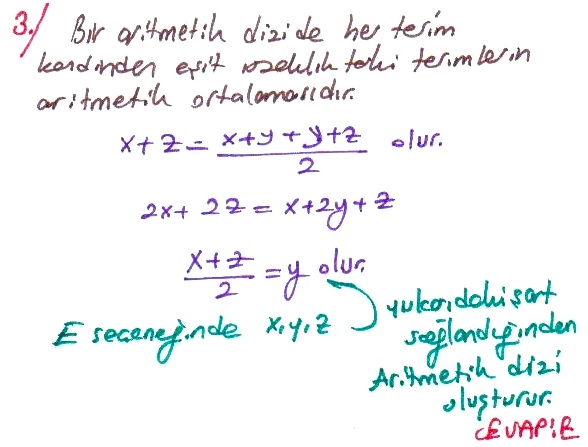 3./ Bir aritmetik dizide her terim
kendinden eşit uzaklıktaki terimlerin
aritmetik ortalamasıdır.
x+z = (x+y+y+z)/2 olur.
2x+2z = x+2y+z
(x+z)/2 = y olur.
E seçeneğinde x,y,z
yukarıdaki şart
sağlandığından
Aritmetik dizi
oluşturur.
CEVAP:E